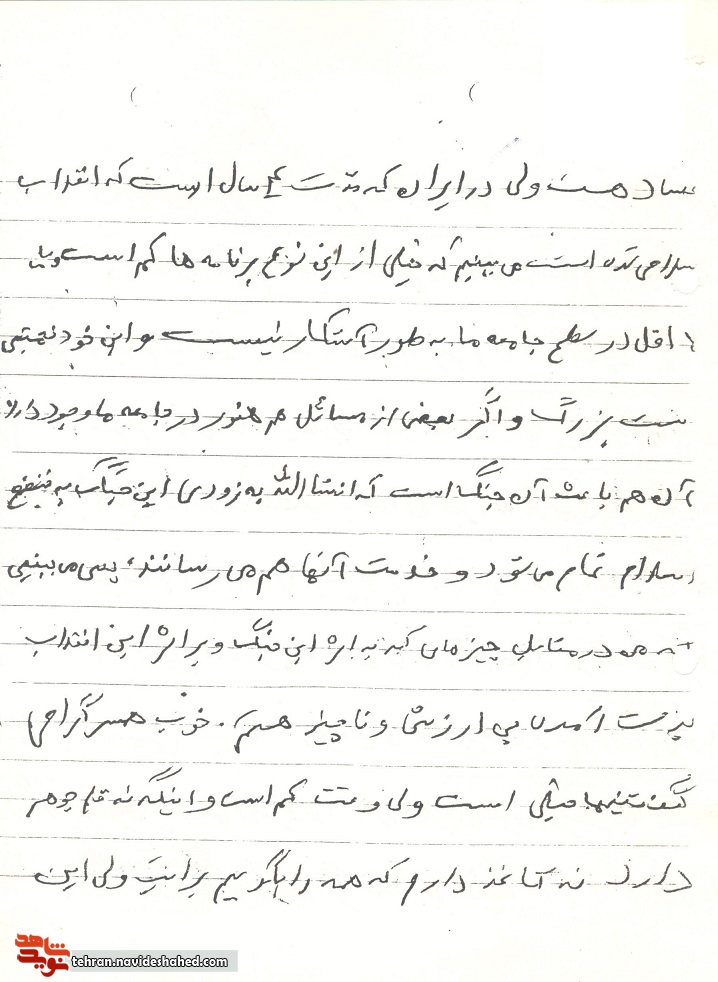 فساد هست ولی در ایران که مدت ۴ سال است که انقلاب
اسلامی شده است می بینیم که خیلی از این نوع برنامه ها کم است و یا
اقل در سطح جامعه ما به طور آشکار نیست و این خود نعمتی
ست بزرگ و اگر بعضی از مسائل هم هنوز در جامعه ما وجود دارد
آن هم باعث آن جنگ است که انشاالله به زودی این جنگ به نفع
اسلام تمام می شود و خدمت آنها هم می رسانند، پس می بینمی
که در مقابل چیزهای که به اثر این جنگ و بر اثر این انقلاب
بدست آمدن بی ارزش و ناچیز هستم. خوب همسر گرامی
گفتنیها خیلی است ولی وقت کم است و اینکه نه قلم جوهر
دارد نه کاغذ دارم که همه را بگویم برایت ولی این
نوید شاهد
tehran.navideshahed.com